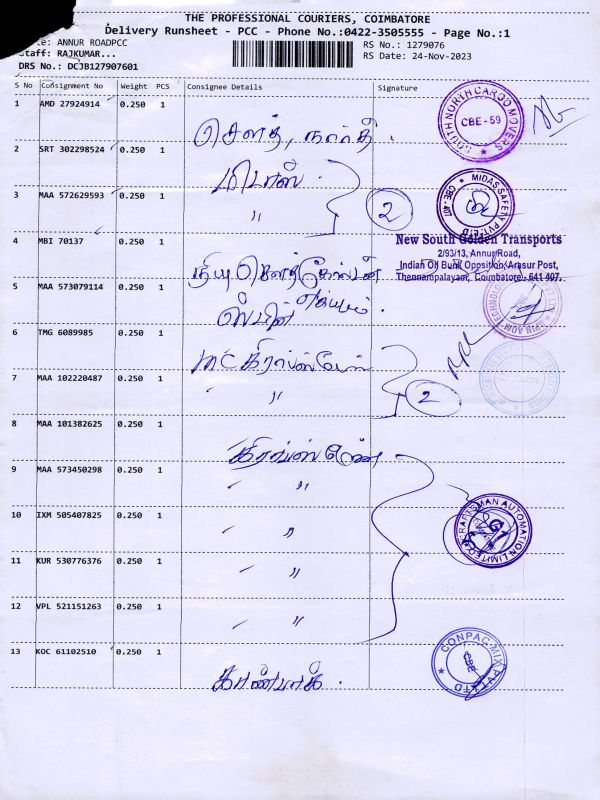 THE PROFESSIONAL COURIERS, COIMBATORE
Delivery Runsheet - PCC - Phone No.:0422-3505555 - Page No.:1
ANNUR ROADPCC RS No.: 1279076
Staff: RAJKUMAR... RS Date: 24-Nov-2023
DRS No.: DCJB127907601
S No Consignment No Weight PCS Consignee Details Signature
1 AMD 27924914 0.250 1
சௌத், நார்த்.
SOUTH NORTH CARGO MOVERS
CBE-59
2 SRT 302298524 0.250 1
மிடாஸ்.
3 MAA 572629593 0.250 1
〃 2
MIDAS SAFETY PVT LTD
CBE-407
4 MBI 70137 0.250 1
New South Golden Transports
2/93/13, Annur Road,
Indian Oil Bunk Opposition, Arasur Post,
Thennampalayam, Coimbatore - 641 407.
5 MAA 573079114 0.250 1
6 TMG 6089985 0.250 1
7 MAA 102220487 0.250 1
〃 2
8 MAA 101382625 0.250 1
9 MAA 573450298 0.250 1
〃
10 IXM 505407825 0.250 1
〃
CRAFTSMAN AUTOMATION LIMITED
11 KUR 530776376 0.250 1
〃
12 VPL 521151263 0.250 1
〃
13 KOC 61102510 0.250 1
காண்பாக்.
CBE